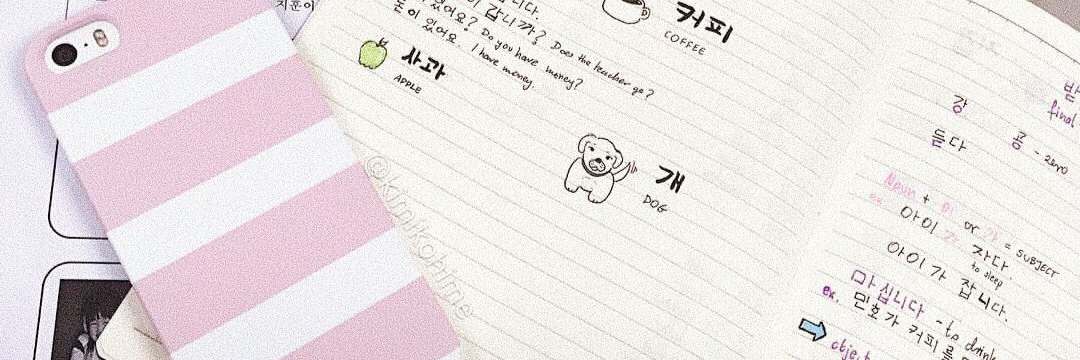 지훈이
니다.
이 갑니까? Does the teacher go?
있어요? Do you have money?
돈이 있어요. I have money.
커피
COFFEE
사과
APPLE
개
DOG
@kimikohime
강
final
듣다
콩 - zero
Noun + 이 or 가 = SUBJECT
ex. 아이가 자다.
to sleep
아이가 잡니다.
마십니다 - to drink
ex. 민호가 커피를
object